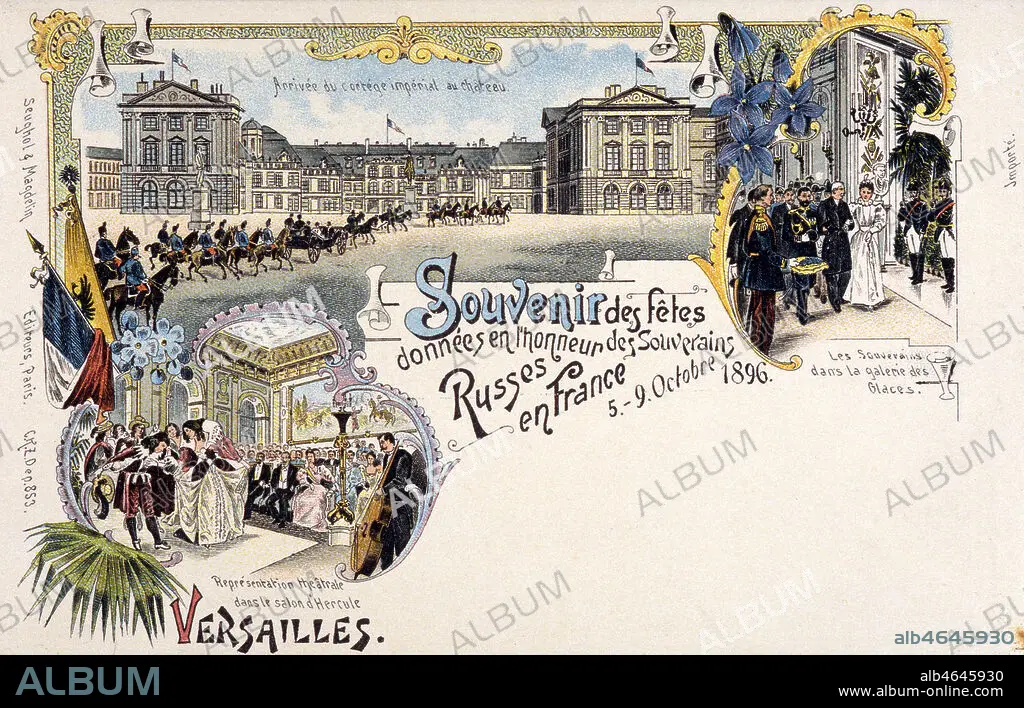 Arrivée du cortège impérial au château.
Souvenir des fêtes
données en l'honneur des Souverains
Russes
en France
5.-9. Octobre 1896.
Les Souverains
dans la galerie des
Glaces.
Représentation théâtrale
dans le salon d'Hercule
VERSAILLES.
Editeurs, Paris.
ALBUM
alb4645930
ALBUM
alb4645930
www.album-online.com